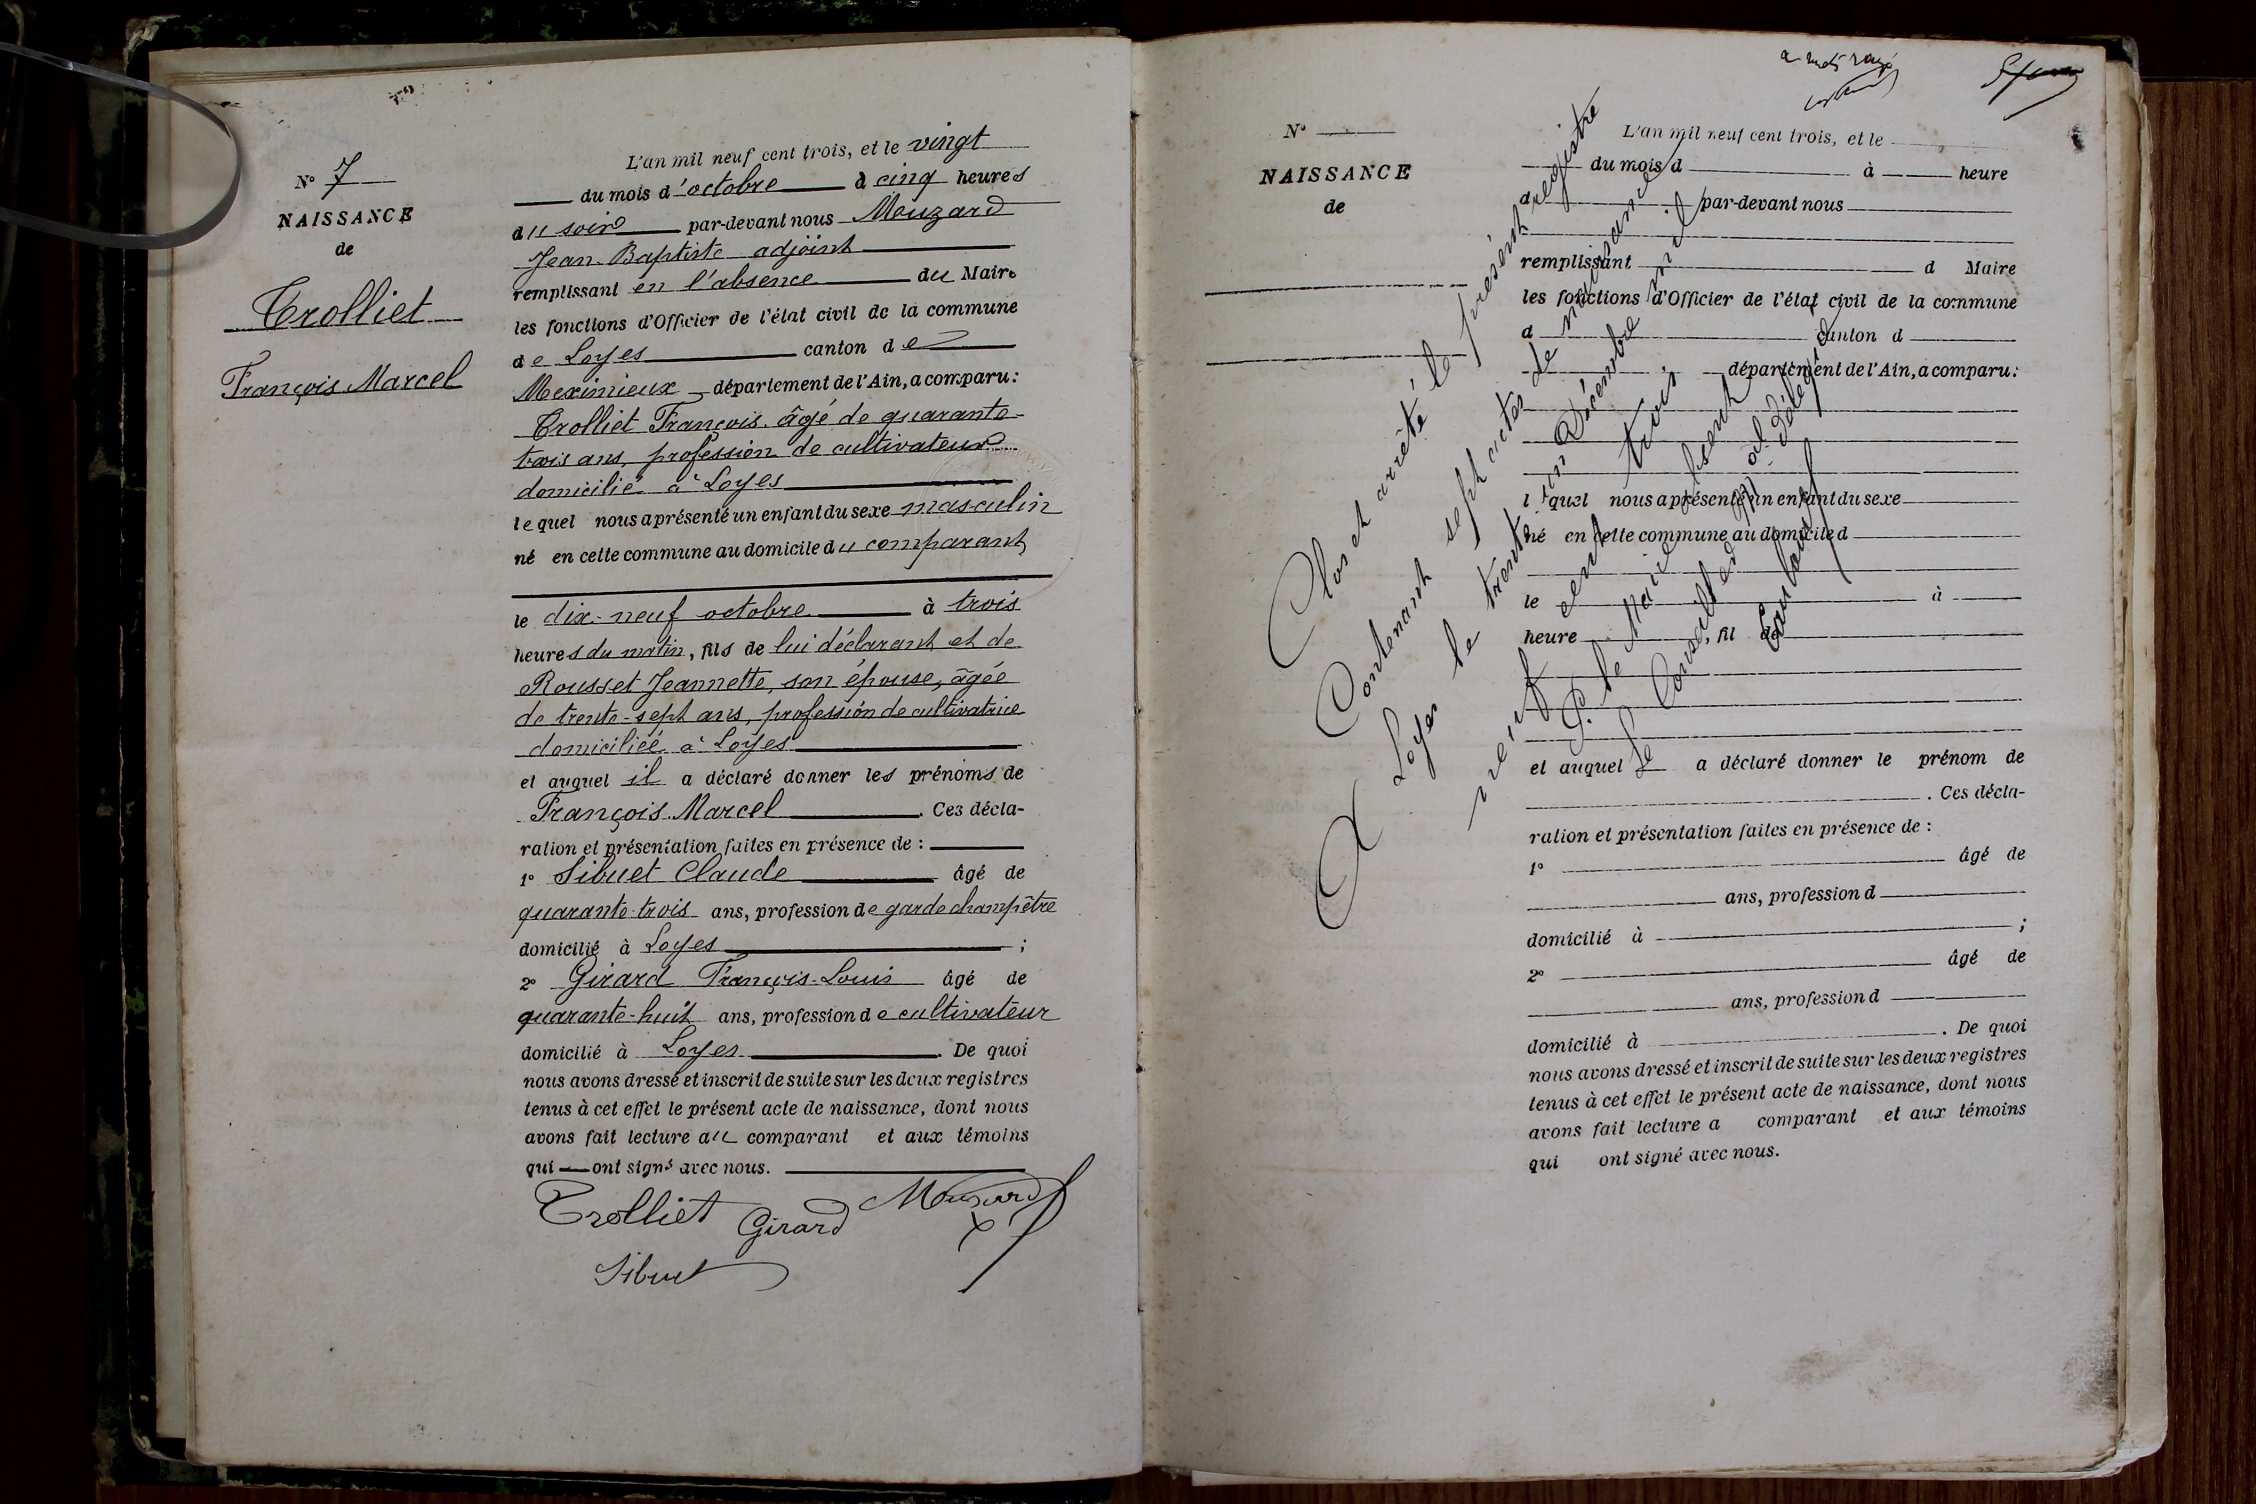 N° 7
NAISSANCE
de
Trolliet
François Marcel
L'an mil neuf cent trois, et le vingt
du mois d'octobre à cinq heures
du soir par-devant nous Mouzard
Jean-Baptiste adjoint
remplissant en l'absence du Maire
les fonctions d'Officier de l'état civil de la commune
de Loyes canton de
Meximieux département de l'Ain, a comparu:
Trolliet François âgé de quarante-
trois ans, profession de cultivateur
domicilié à Loyes
lequel nous a présenté un enfant du sexe masculin
né en cette commune au domicile du comparant
le dix-neuf octobre à trois
heures du matin, fils de lui déclarant et de
Rousset Jeannette, son épouse, âgée
de trente-sept ans, profession de cultivatrice
domiciliée à Loyes
et auquel il a déclaré donner les prénoms de
François Marcel. Ces décla-
ration et présentation faites en présence de :
1° Sibuet Claude âgé de
quarante-trois ans, profession de garde champêtre
domicilié à Loyes ;
2° Girard François-Louis âgé de
quarante-huit ans, profession de cultivateur
domicilié à Loyes. De quoi
nous avons dressé et inscrit de suite sur les deux registres
tenus à cet effet le présent acte de naissance, dont nous
avons fait lecture au comparant et aux témoins
qui ont signé avec nous.
Trolliet Girard Mouzard
Sibuet
N°
NAISSANCE
de
L'an mil neuf cent trois, et le
du mois d à heure
d par-devant nous
remplissant d Maire
les fonctions d'Officier de l'état civil de la commune
d canton d
département de l'Ain, a comparu:
l quel nous a présenté un enfant du sexe
né en cette commune au domicile d
le à
heure , fil de
et auquel a déclaré donner le prénom de
. Ces décla-
ration et présentation faites en présence de :
1° âgé de
ans, profession d
domicilié à ;
2° âgé de
ans, profession d
domicilié à . De quoi
nous avons dressé et inscrit de suite sur les deux registres
tenus à cet effet le présent acte de naissance, dont nous
avons fait lecture a comparant et aux témoins
qui ont signé avec nous.
Clos et arrêté le présent registre
Contenant sept actes de naissance
A Loyes le trente un Décembre mil
neuf cent trois
P. le Maire absent
Le Conseiller M.al délégué